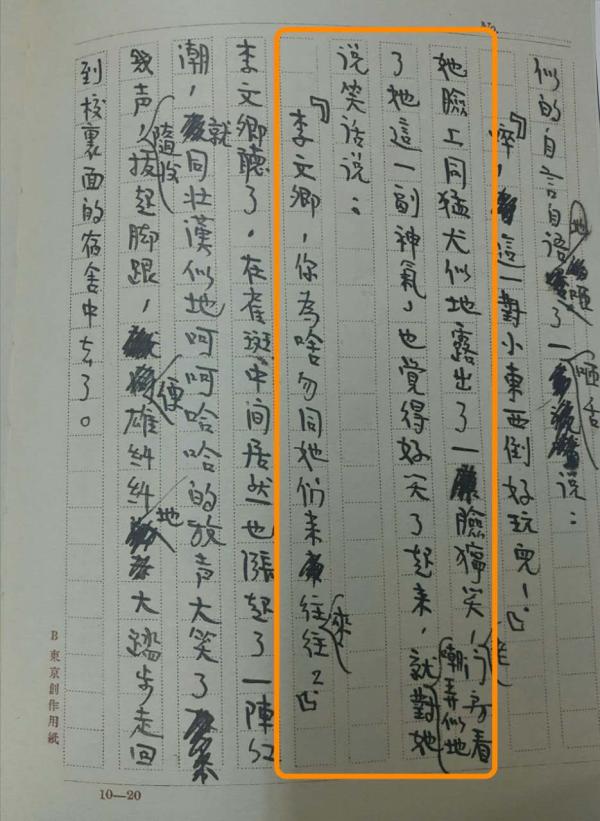 似的自言自语地咂了一咂舌说：
『啐，這一對小東西倒好玩兒！』
她臉上同猛犬似地露出了一臉獰笑，门房看
了她這一副神氣，也覺得好笑了起来，就嘲弄似地對她
说笑话说：
『李文卿，你為啥勿同她们来往來往？』
李文卿聽了，在雀斑中间居然也漲起了一陣红
潮，就同壮漢似地呵呵哈哈的放声大笑了
幾声，隨後拔起脚跟，便雄糾糾地大踏步走回
到校裏面的宿舍中去了。
B 東京創作用紙
10—20